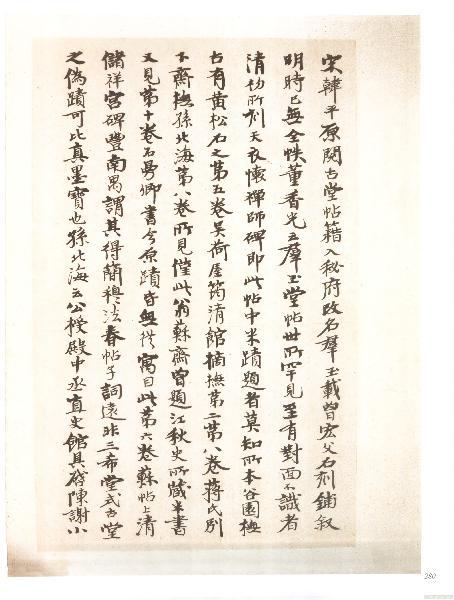 宋韓平原閱古堂帖籍入秘府改名羣玉載曾宏父石刻鋪叙
明時已無全帙董香光云羣玉堂帖世所罕見至有對面不識者
清初所刻天衣懷禪師碑即此帖中米蹟題者莫知所本谷園極
古有黃松石之第五卷吳荷屋筠清館摘撫第二第八卷蔣氏別
下齋撫孫北海第八卷所見僅此翁蘇齋曾題江秋史所藏半書
又見第十卷石曼卿書今原蹟皆無從寓目此第六卷蘇帖上清
儲祥宮碑豐南禺謂其得蘭稧法春帖子詞遠非三希堂式古堂
之偽蹟可比真墨寶也孫北海云公授殿中丞直史館具啓陳謝小
280